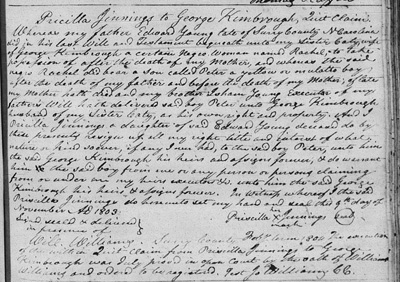 Priscilla Jennings to George Kimbrough, Quit Claim
Whereas my father Edward Young late of Surry County N Carolina
did in his last Will and Testament bequeath unto my sister Caty wife
of George Kimbrough a certain Negro Woman named Rachel, to
possession of after the death of my Mother, and whereas the said
negro Rachel did bear a son called Peter a yellow or mulatto boy
after the death of my father and before the death of my Mother, & of late
my Mother hath died and my brother Isham Young Executor of my
fathers Will hath delivered said boy Peter unto George Kimbrough
husband of my Sister Caty, as his own right and property. And I
Priscilla Jennings a daughter of said Edward Young deceased do by
these presents resign all my right title and interest of what
nature or kind soever, if any I have had, to the said boy Peter, unto him
the said George Kimbrough his heirs and assigns forever, & do warrant
him the said boy from me or any person or persons claiming
from or under me, my heirs executors &c. unto him the said George
Kimbrough his heirs & assigns forever. In Witness whereof I the said
Priscilla Jennings do hereunto set my hand and seal this 9th day of
November AD 1803.
Signed sealed & delivered Priscilla Jennings seal
in presence of mark
Will. Williams Surry County Term 180 The execution
of the within Quit Claim from Priscilla Jennings to George
Kimbrough was duly proved in open Court by the oath of William
Williams and ordered to be registered. Test Jo Williams CC.